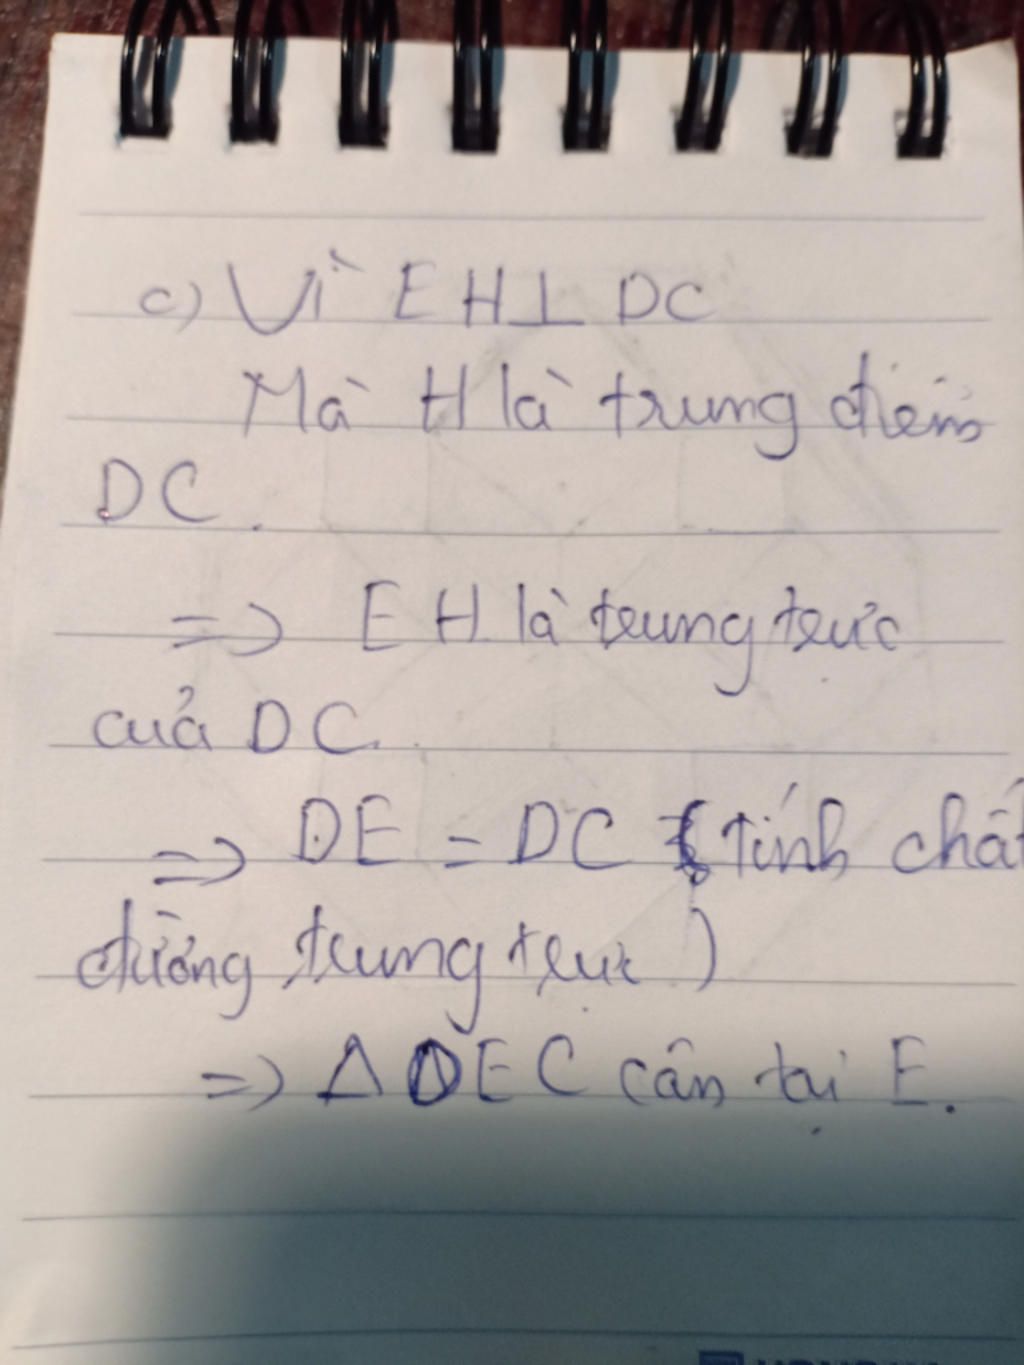 c) Vì EH⊥ DC
Mà H là trung điểm
DC.
=> EH là trung trực
của DC.
=> DE = DC (Tính chất
đường trung trực)
=> Δ DEC cân tại E.